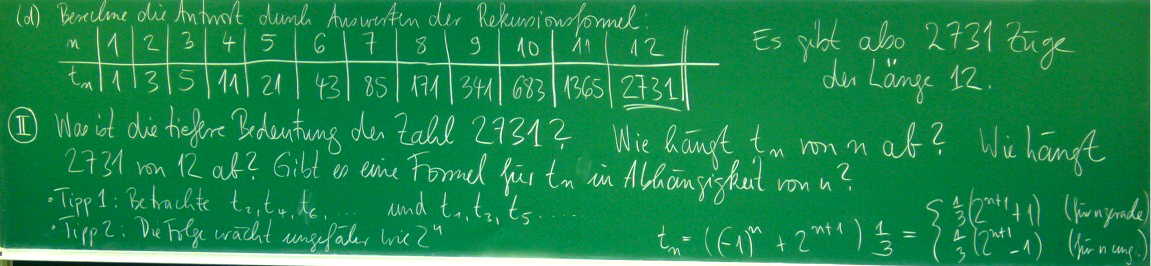 (d) Berechne die Antwort durch Auswerten der Rekursionsformel:
n | 1 | 2 | 3 | 4 | 5 | 6 | 7 | 8 | 9 | 10 | 11 | 12
tn | 1 | 3 | 5 | 11 | 21 | 43 | 85 | 171 | 341 | 683 | 1365 | 2731
Es gibt also 2731 Züge
der Länge 12.
II Was ist die tiefere Bedeutung der Zahl 2731? Wie hängt tn von n ab? Wie hängt
2731 von 12 ab? Gibt es eine Formel für tn in Abhängigkeit von n?
• Tipp 1: Betrachte t2, t4, t6, ... und t1, t3, t5 .....
• Tipp 2: Die Folge wächst ungefähr wie 2^n
tn = ((-1)^n + 2^(n+1)) 1/3 = { 1/3 (2^(n+1) + 1) (für n gerade)
1/3 (2^(n+1) - 1) (für n ung.)